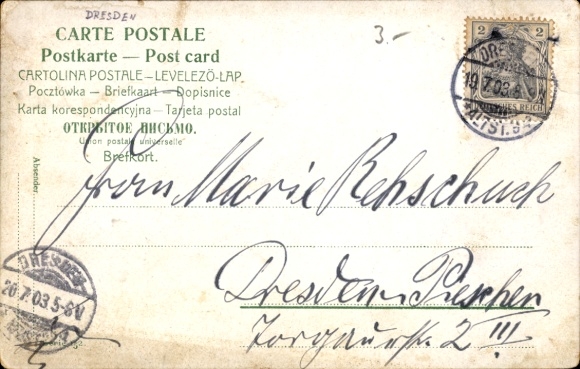 DRESDEN
3.-
CARTE POSTALE
Postkarte — Post card
CARTOLINA POSTALE — LEVELEZÖ-LAP
Pocztówka — Briefkaart — Dopisnice
Karta korespondencyjna — Tarjeta postal
ОТКРЫТОЕ ПИСЬМО.
Union postale universelle
Brefkort.
2 2
DEUTSCHES REICH
DRESDEN
19.7.03.
ALTST.
Absender:
Frau Marie Rehschuch
Dresden-Pieschen
Torgauerstr. 2 III
DRESDEN
20.7.03.5-8V.